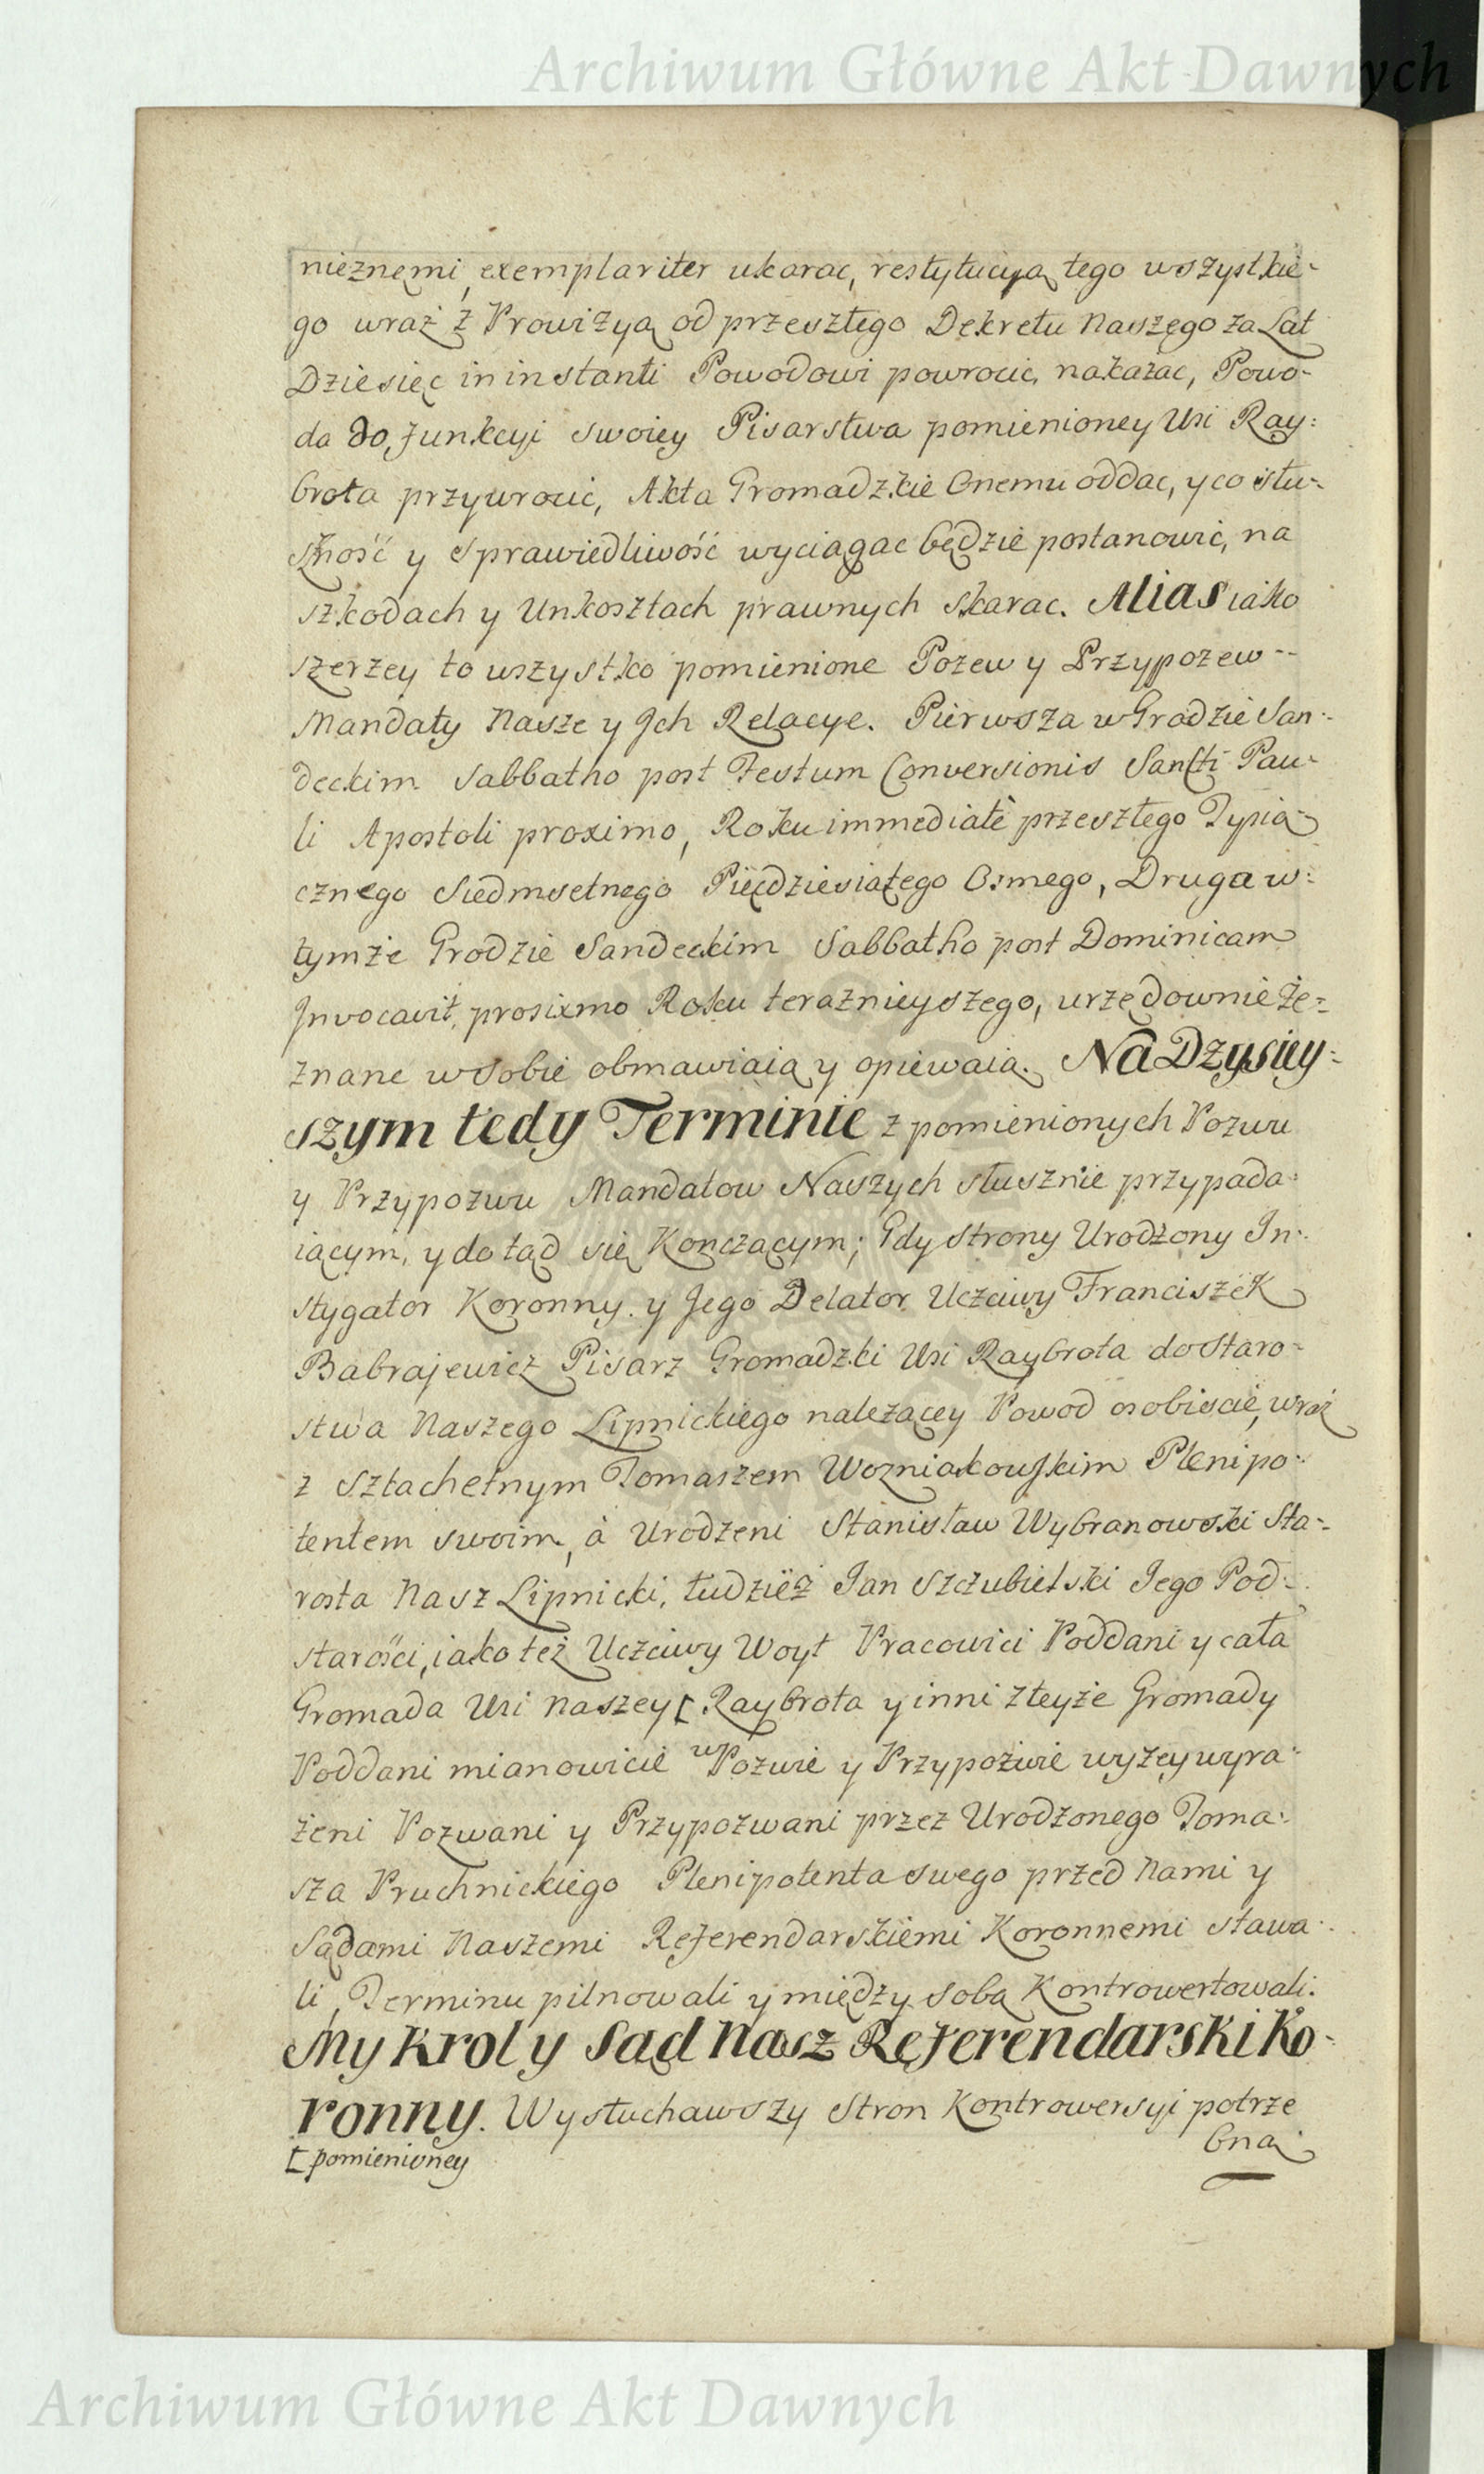 Archiwum Główne Akt Dawnych
nieznęmi, exemplariter ukarac, restytucyą tego wszystkie-
go wraż z Prowizyą od przeszłego Dekretu Naszego za Lat
Dziesięc in instanti Powodowi powrocic, nakazac, Powo-
da do Funkcyi swoiey Pisarstwa pomienioney Wsi Ray:
brota przywrocic, Akta Gromadzkie Onemu oddac, y co słu-
szność y sprawiedliwość wyciągac będzie postanowic, na
szkodach y Unkosztach prawnych skarac. Alias iako
szerzey to wszystko pomienione Pozew y Przypozew --
Mandaty Nasze y Ich Relacye. Pierwsza w Grodzie San-
deckim Sabbatho post Festum Conversionis Sancti Pau-
li Apostoli proximo, Roku immediatè przeszłego Tysią-
cznego Siedmsetnego Pięcdziesiątego Osmego, Druga w:
tymże Grodzie Sandeckim Sabbatho post Dominicam
Invocavit, prosixmo Roku teraznieyszego, urzędownie ze=
znane w sobie obmawiaią y opiewaią. Na Dzysiey-
szym tedy Terminie z pomienionych Pozwu
y Przypozwu Mandatow Naszych słusznie przypada-
iącym, y do tąd się Kończącym; Gdy strony Urodzony In-
stygator Koronny y Jego Delator Uczciwy Franciszek
Babrajewicz Pisarz Gromadzki Wsi Raybrota do Staro-
stwa Naszego Lipnickiego nalezącey Powod osobiscie, wraz
z Szlachetnym Tomaszem Wozniakowskim Plenipo-
tentem swoim, à Urodzeni Stanisław Wybranowski Sta-
rosta Nasz Lipnicki, tudzież Jan Szczubielski Jego Pod-
starości, iako też Uczciwy Woyt Pracowici Poddani y cała
Gromada Wsi Naszey [ Raybrota y inni z teyże Gromady
Poddani mianowicie w Pozwie y Przypozwie wyzey wyra-
żeni Pozwani y Przypozwani przez Urodzonego Toma-
sza Pruchnickiego Plenipotenta swego przed Nami y
Sądami Naszemi Referendarskiemi Koronnemi stawa-
li, Terminu pilnowali y między sobą Kontrowertowali.
My Krol y Sąd Nasz Referendarski Ko-
ronny. Wysłuchawszy Stron Kontrowersyi potrze
bną
[ pomienioney
Archiwum Główne Akt Dawnych